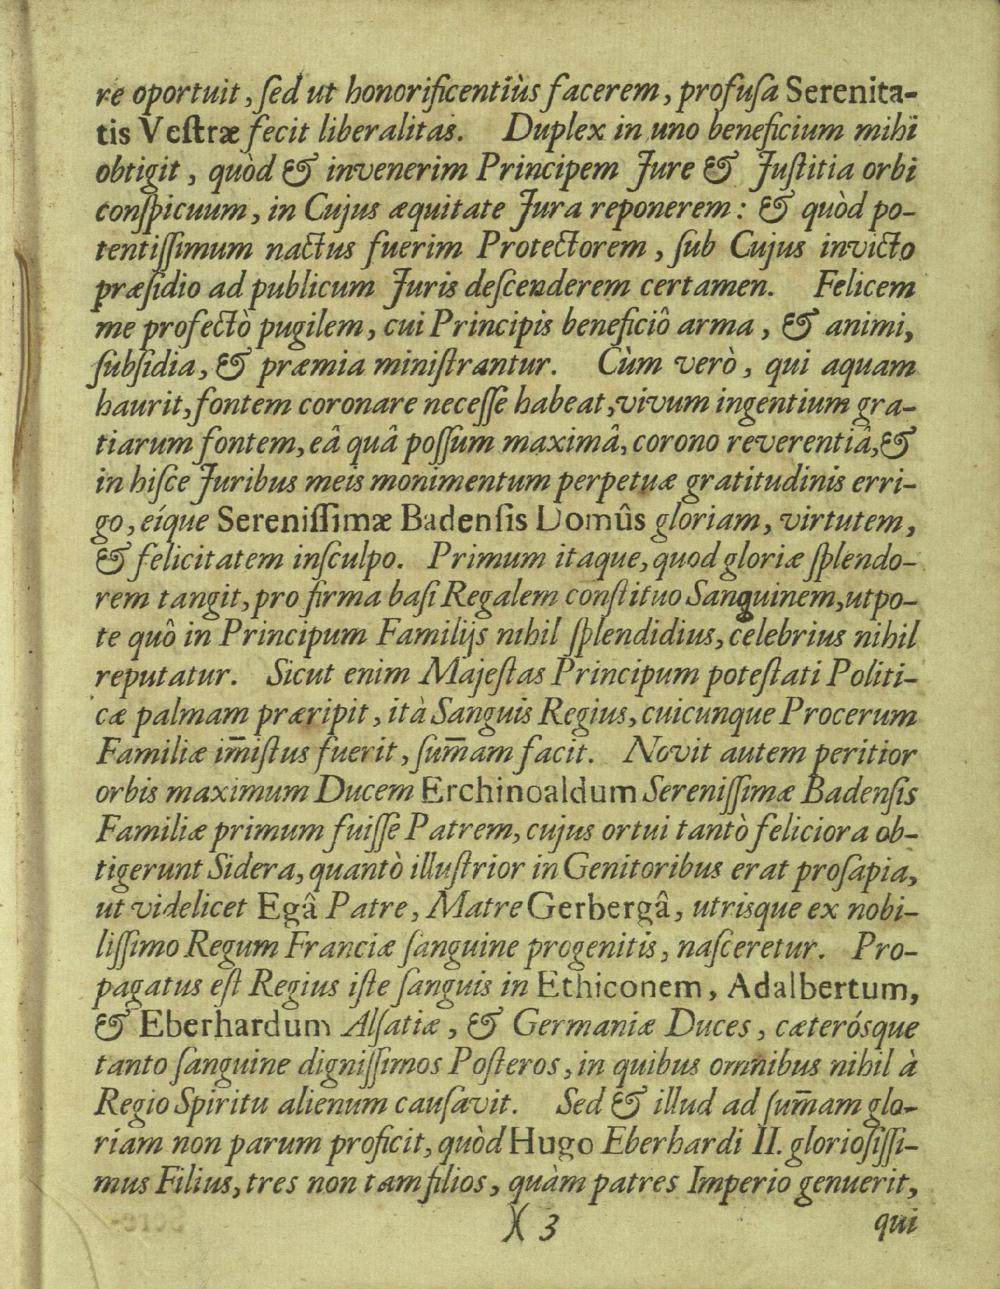 re oportuit, ſed ut honorificentiùs facerem, profuſa Serenita-
tis Veſtræ fecit liberalitas. Duplex in uno beneficium mihi
obtigit, quòd & invenerim Principem Jure & Juſtitia orbi
conſpicuum, in Cujus æquitate Jura reponerem: & quòd po-
tentiſſimum nactus fuerim Protectorem, ſub Cujus invicto
præſidio ad publicum Juris deſcenderem certamen. Felicem
me profectò pugilem, cui Principis beneficiô arma, & animi,
ſubſidia, & præmia miniſtrantur. Cùm verò, qui aquam
haurit, fontem coronare neceſſe habeat, vivum ingentium gra-
tiarum fontem, eâ quâ poſſum maximâ, corono reverentiâ, &
in hiſce Juribus meis monimentum perpetuæ gratitudinis erri-
go, eíque Sereniſſimæ Badenſis Domûs gloriam, virtutem,
& felicitatem inſculpo. Primum itaque, quod gloriæ ſplendo-
rem tangit, pro firma baſi Regalem conſtituo Sanguinem, utpo-
te quô in Principum Familijs nihil ſplendidius, celebrius nihil
reputatur. Sicut enim Majeſtas Principum poteſtati Politi-
cæ palmam præripit, ità Sanguis Regius, cuicunque Procerum
Familiæ im̄iſtus fuerit, ſum̄am facit. Novit autem peritior
orbis maximum Ducem Erchinoaldum Sereniſſimæ Badenſis
Familiæ primum fuiſſe Patrem, cujus ortui tantò feliciora ob-
tigerunt Sidera, quantò illuſtrior in Genitoribus erat proſapia,
ut videlicet Egâ Patre, Matre Gerbergâ, utrisque ex nobi-
liſſimo Regum Franciæ ſanguine progenitis, naſceretur. Pro-
pagatus eſt Regius iſte ſanguis in Ethiconem, Adalbertum,
& Eberhardum Alſatiæ, & Germaniæ Duces, cæterósque
tanto ſanguine digniſſimos Poſteros, in quibus omnibus nihil à
Regio Spiritu alienum cauſavit. Sed & illud ad ſum̄am glo-
riam non parum proficit, quòd Hugo Eberhardi II. glorioſiſſi-
mus Filius, tres non tam filios, quàm patres Imperio genuerit,
)( 3 qui